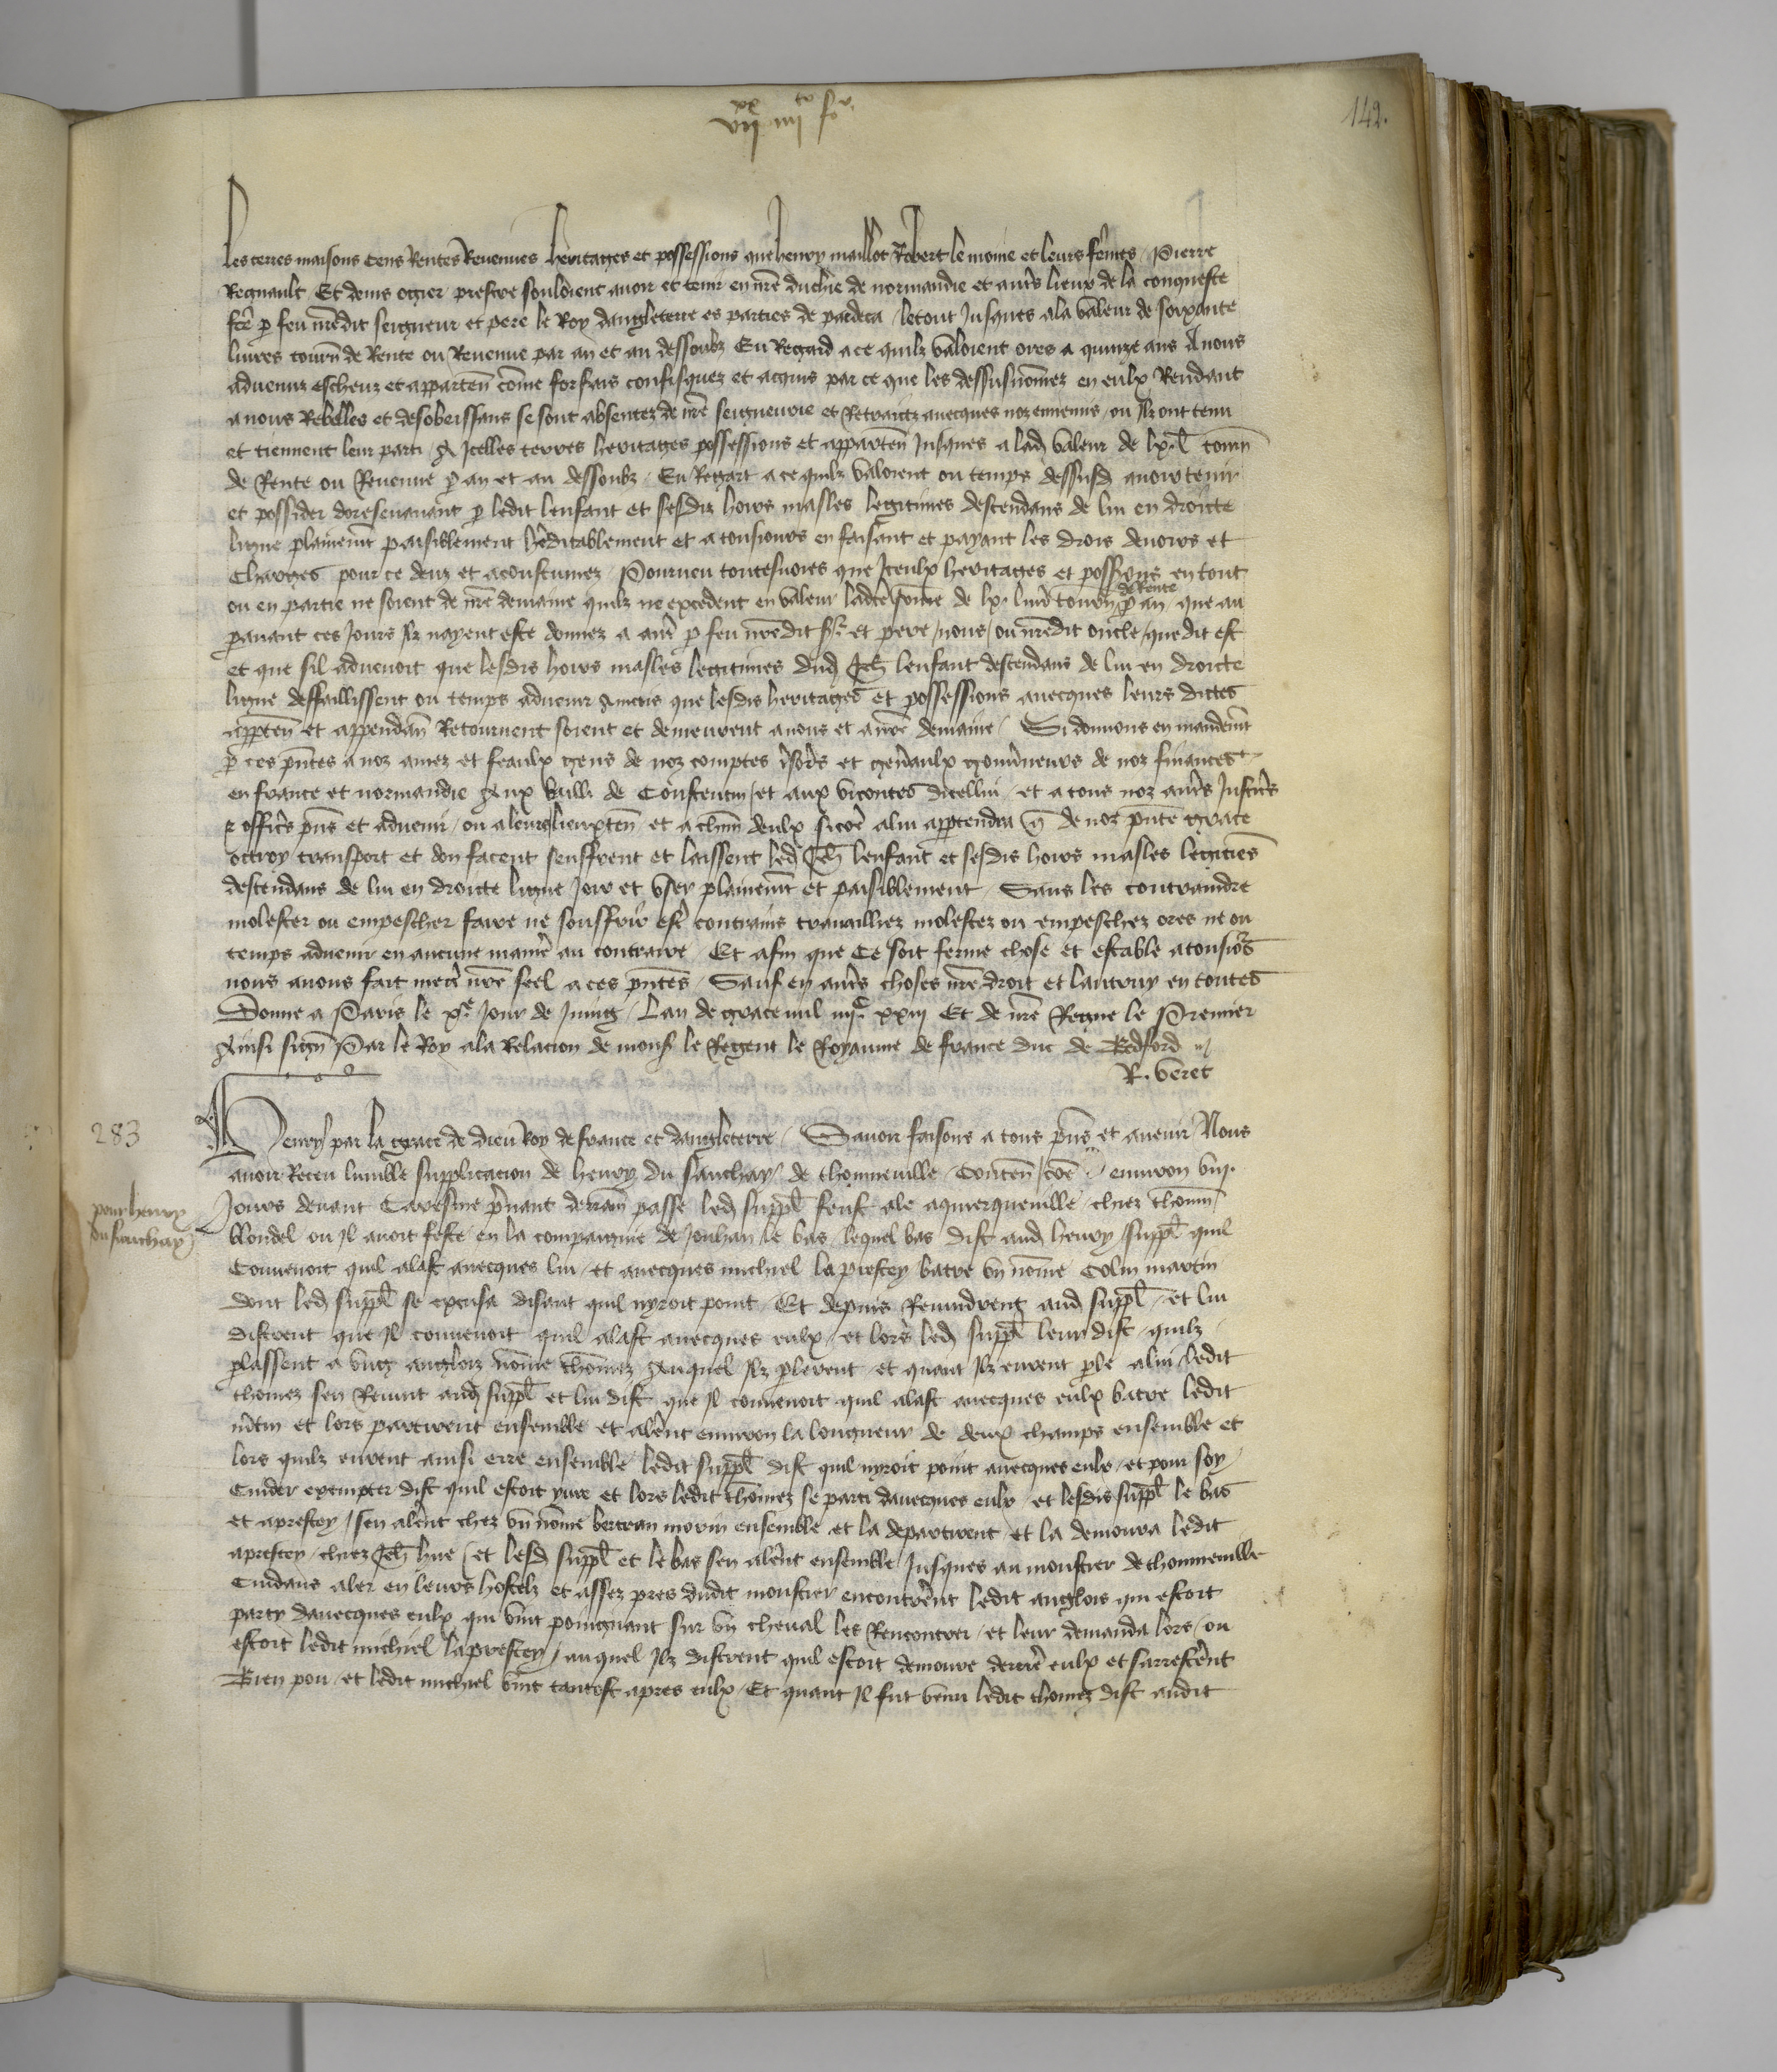 vii xx iiii to fo
142.
les terres maisons cens Rentes Reuenues heritages et possessions que henry maillot Robert le moine et leurs fem̄es / Pierre
Regnault Et denis ogier prestre souloient auoir et tenir en nr̄e duchie de normandie et aut̄s lieux de la conqueste
fc̄e ꝑ feu nr̄edit seigneur et pere le Roy dangleterre es parties de pardeca / letout Jusques ala valeur de soixante
liures tourn̄ de Rente ou Reuenue par an et au dessoubz Eu Regard ace quilz valoient ores a quinze ans A nous
aduenuz escheuz et apparten̄ com̄e forfais confisquez et acquis par ce que les dessusnom̄ez en eulx Rendant
a nous Rebelles et desobeissans se sont absentez de nr̄e seigneurie et Retraictz auecques noz ennemis / ou Ilz ont tenu
et tiennent leur parti / A Icelles terres heritages possessions et apparten̄ Jusques a lad valeur de lx. l tourn̄
de Rente ou Reuenue ꝑ an et au dessoubz / Eu Regart a ce quilz valoient ou temps dessusd auoir tenir
et possider doresenauant ꝑ ledit lenfant et sesdiz hoirs masles legitimes descendans de lui en droicte
ligne plainemt̄ paisiblement hēditablement et a tousiours en faisant et payant les drois deuoirs et
Charges pour ce deuz et acoustumez / Pourueu toutesuoies que Iceulx heritages et possions en tout
ou en partie ne soient de nr̄e demaine quilz ne excedent en valeur ladcē som̄e de lx. liur̄ tourn̄ de Rente ꝑ an que au
parauant ces Jours Ilz nayent este donnez a aut̄ ꝑ feu nr̄edit sr̄ et pere / nous / ou nr̄edit oncle / que dit est
et que sil aduenoit que lesdis hoirs masles legitimes dud Jeh̄ lenfant descendans de lui en droicte
ligne deffaillissent ou temps aduenir Aincois que lesdis heritages et possessions auecques leurs dictes
apꝑten̄ et appendan̄ Retournent soient et demeurent a nous et a nr̄e demaine / Si donnons en mandemt̄
ꝑ ces pn̄tes a noz amez et feaulx gens de noz comptes tr̄sor̄s et gen̄aulx gouūneurs de noz finances
en france et normandie Aux bailli de Constentin / et aux vicontes dicellui / et a tous noz aut̄s Justic̄s
⁊ offic̄s pn̄s et aduenir / ou a leurs lieuxten̄ et a chūn deulx sicōe alui apꝑtendra q̄ de noz pn̄te grace
octroy transport et don facent seuffrent et laissent led Jeh̄ lenfant et sesdis hoirs masles legitiēs
descendans de lui en droicte ligne Joir et vser plainemt̄ et paisiblement / Sans les contraindre
molester ou empescher faire ne souffrir est̄ contrains trauailliez molestez ou empeschez ores ne ou
temps aduenir en aucune manīe au contraire Et afin que Ce soit ferme chose et estable a tousiōs
nous auons fait mect̄ nr̄e seel a ces pn̄tes / Sauf en aut̄s choses nr̄e droit et lautruy en toutes
Donne a Paris le x.e Jour de Juing / Lan de grace mil iiijc xxiij Et de nr̄e Regne le Premier
Ainsi sign̄ Par le Roy ala Relacion de monsr̄ le Regent le Royaume de france duc de Bedford
R. veret
283
pour henry
du sauchay
Henry par la grace de dieu Roy de france et dangleterre / Sauoir faisons a tous pn̄s et auenir Nous
auoir Receu lumble supplicacion de henry du sauchay / de thonneuille Conten̄ / cōe enuiron viij.
Jours deuant Caresme pn̄ant derrain̄ passe led suppl̄ feust ale aquerqueuille / chiez thom̄
blondel ou Il auoit feste en la compaignie de Jouhan le bas / lequel bas dist aud henry suppl̄ quil
Conuenoit quil alast auecques lui / et auecques michiel laprestey batre vn nom̄e Colin martin
dont led suppl̄ se excusa disant quil nyroit point / Et depuis Reuindrent aud suppl̄ / et lui
distrent que Il conuenoit quil alast auecques eulx / et lors led suppl̄ leur dist / quilz
ꝑlassent a vng anglois nom̄e thom̄ez Auquel Ilz ꝑlerent / et quant Ilz eurent ꝑle alui / ledit
thomez sen Reuint aud suppl̄ et lui dist que Il conuenoit quil alast auecques eulx batre ledit
m̄tin et lors partirent ensemble et aler̄nt enuiron la longueur de deux champs ensemble et
lors quilz eurent ainsi erre ensemble ledit suppl̄ dist quil nyroit point auecques eulx / et pour soy
Cuider exempter dist quil estoit yure et lors ledit thom̄ez se parti dauecques eulx / et lesdis suppl̄ le bas
et aprestey / sen aler̄nt chez vn nom̄e bertran morin ensemble et la departirent et la demoura ledit
aprestey / chiez Jeh̄ hue / et lesd suppl̄ et le bas sen aler̄nt ensemble / Jusques au moustier de thonneuille
Cuidans aler en leurs hostelz et assez pres dudit moustier encontrer̄nt ledit anglois qui estoit
party dauecques eulx qui vint poingnant sur vn cheual les Rencontrer / et leur demanda lors / ou
estoit ledit michiel laprestey / auquel Ilz distrent quil estoit demoure derrīe eulx et sarrester̄nt
Bien pou / et ledit michiel vint tantost apres eulx / Et quant Il fut venu ledit thomez dist audit